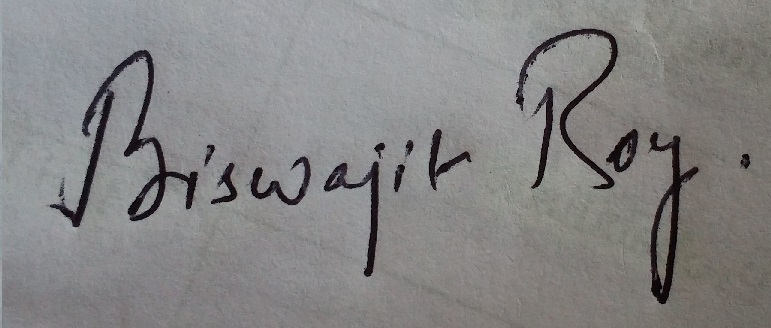 Biswajit Roy.